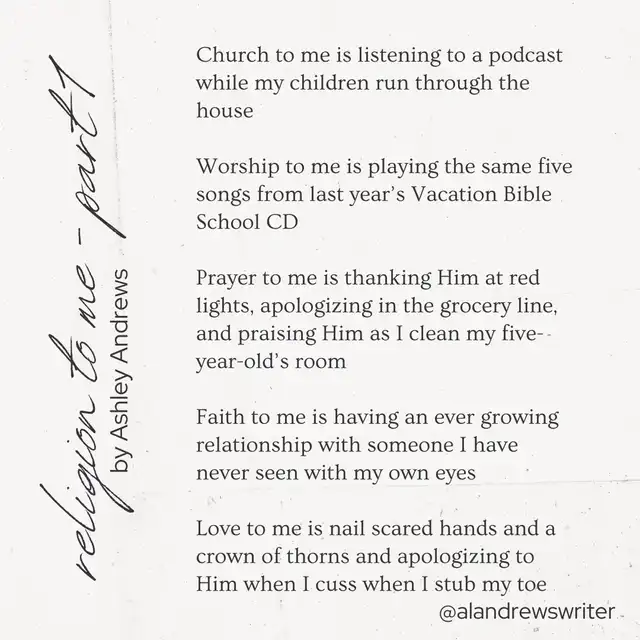 religion to me - part 1
by Ashley Andrews
Church to me is listening to a podcast
while my children run through the
house
Worship to me is playing the same five
songs from last year’s Vacation Bible
School CD
Prayer to me is thanking Him at red
lights, apologizing in the grocery line,
and praising Him as I clean my five-
year-old’s room
Faith to me is having an ever growing
relationship with someone I have
never seen with my own eyes
Love to me is nail scared hands and a
crown of thorns and apologizing to
Him when I cuss when I stub my toe
@alandrewswriter